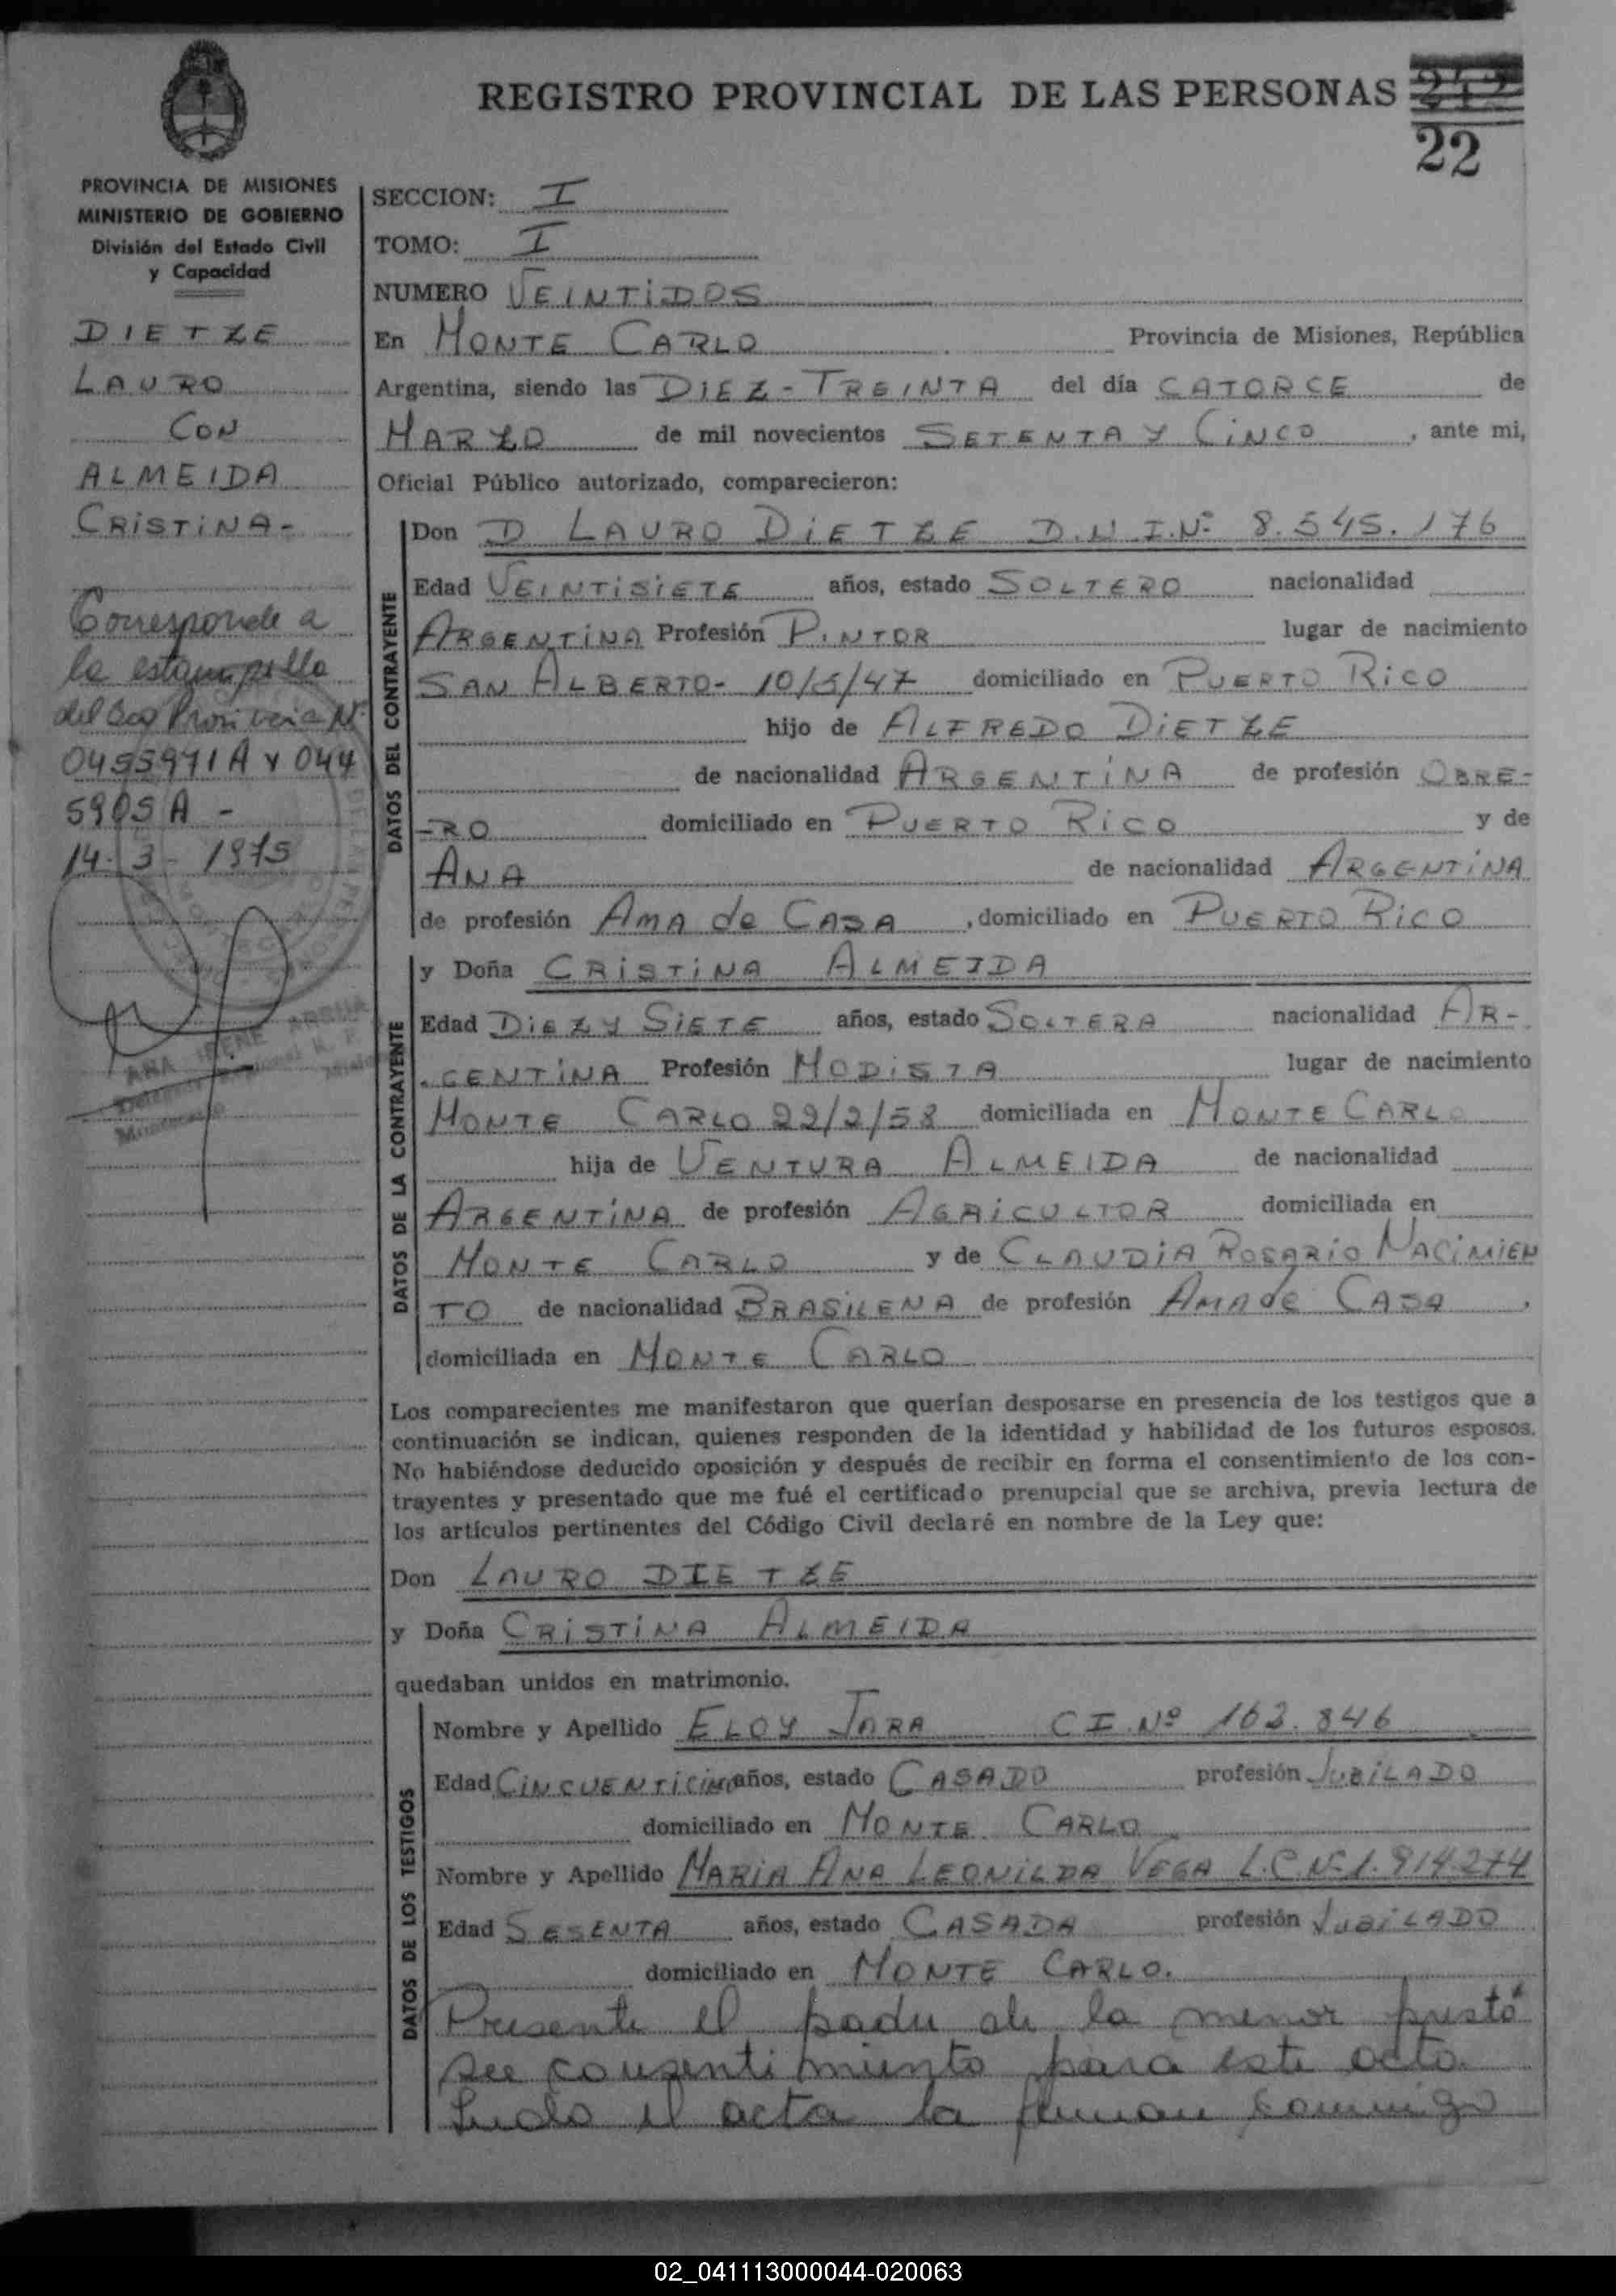 REGISTRO PROVINCIAL DE LAS PERSONAS 212
22
PROVINCIA DE MISIONES
MINISTERIO DE GOBIERNO
División del Estado Civil
y Capacidad
DIETZE
LAURO
CON
ALMEIDA
CRISTINA-
Corresponde a
la estampilla
del Bco Provincia Nº
0455971 A y 044
5905 A -
14-3-1975
ANA IRENE
SECCION: I
TOMO: I
NUMERO VEINTIDOS
En MONTE CARLO Provincia de Misiones, República
Argentina, siendo las DIEZ-TREINTA del día CATORCE de
MARZO de mil novecientos SETENTA Y CINCO, ante mi,
Oficial Público autorizado, comparecieron:
DATOS DEL CONTRAYENTE
Don D LAURO DIETZE D.N.I.Nº 8.545.176
Edad VEINTISIETE años, estado SOLTERO nacionalidad
ARGENTINA Profesión PINTOR lugar de nacimiento
SAN ALBERTO- 10/5/47 domiciliado en PUERTO RICO
hijo de ALFREDO DIETZE
de nacionalidad ARGENTINA de profesión OBRE-
-RO domiciliado en PUERTO RICO y de
ANA de nacionalidad ARGENTINA
de profesión AMA de CASA, domiciliado en PUERTO RICO
DATOS DE LA CONTRAYENTE
y Doña CRISTINA ALMEIDA
Edad DIEZ Y SIETE años, estado SOLTERA nacionalidad AR-
.GENTINA Profesión MODISTA lugar de nacimiento
MONTE CARLO 22/2/58 domiciliada en MONTE CARLO
hija de VENTURA ALMEIDA de nacionalidad
ARGENTINA de profesión AGRICULTOR domiciliada en
MONTE CARLO y de CLAUDIA ROSARIO NACIMIEN
TO de nacionalidad BRASILENA de profesión AMA de CASA,
domiciliada en MONTE CARLO
Los comparecientes me manifestaron que querían desposarse en presencia de los testigos que a
continuación se indican, quienes responden de la identidad y habilidad de los futuros esposos.
No habiéndose deducido oposición y después de recibir en forma el consentimiento de los con-
trayentes y presentado que me fué el certificado prenupcial que se archiva, previa lectura de
los artículos pertinentes del Código Civil declaré en nombre de la Ley que:
Don LAURO DIETZE
y Doña CRISTINA ALMEIDA
quedaban unidos en matrimonio.
DATOS DE LOS TESTIGOS
Nombre y Apellido ELOY JARA CI.Nº 163.846
Edad CINCUENTICIN años, estado CASADO profesión JUBILADO
domiciliado en MONTE CARLO
Nombre y Apellido MARIA ANA LEONILDA VEGA L.C.Nº1.914274
Edad SESENTA años, estado CASADA profesión JUBILADO
domiciliado en MONTE CARLO.
Presente el padre de la menor prestó
su consentimiento para este acto.
Leida el acta la firman conmigo
02_041113000044-020063